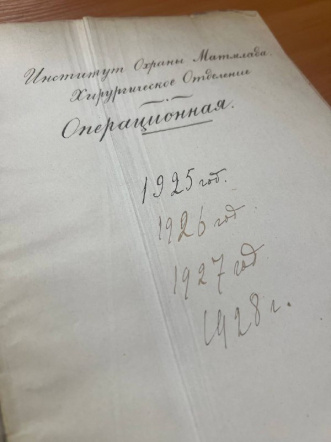 Институт Охраны Матмлада
Хирургическое Отделение
Операционная.
1925 год.
1926 год
1927 год
1928 г.